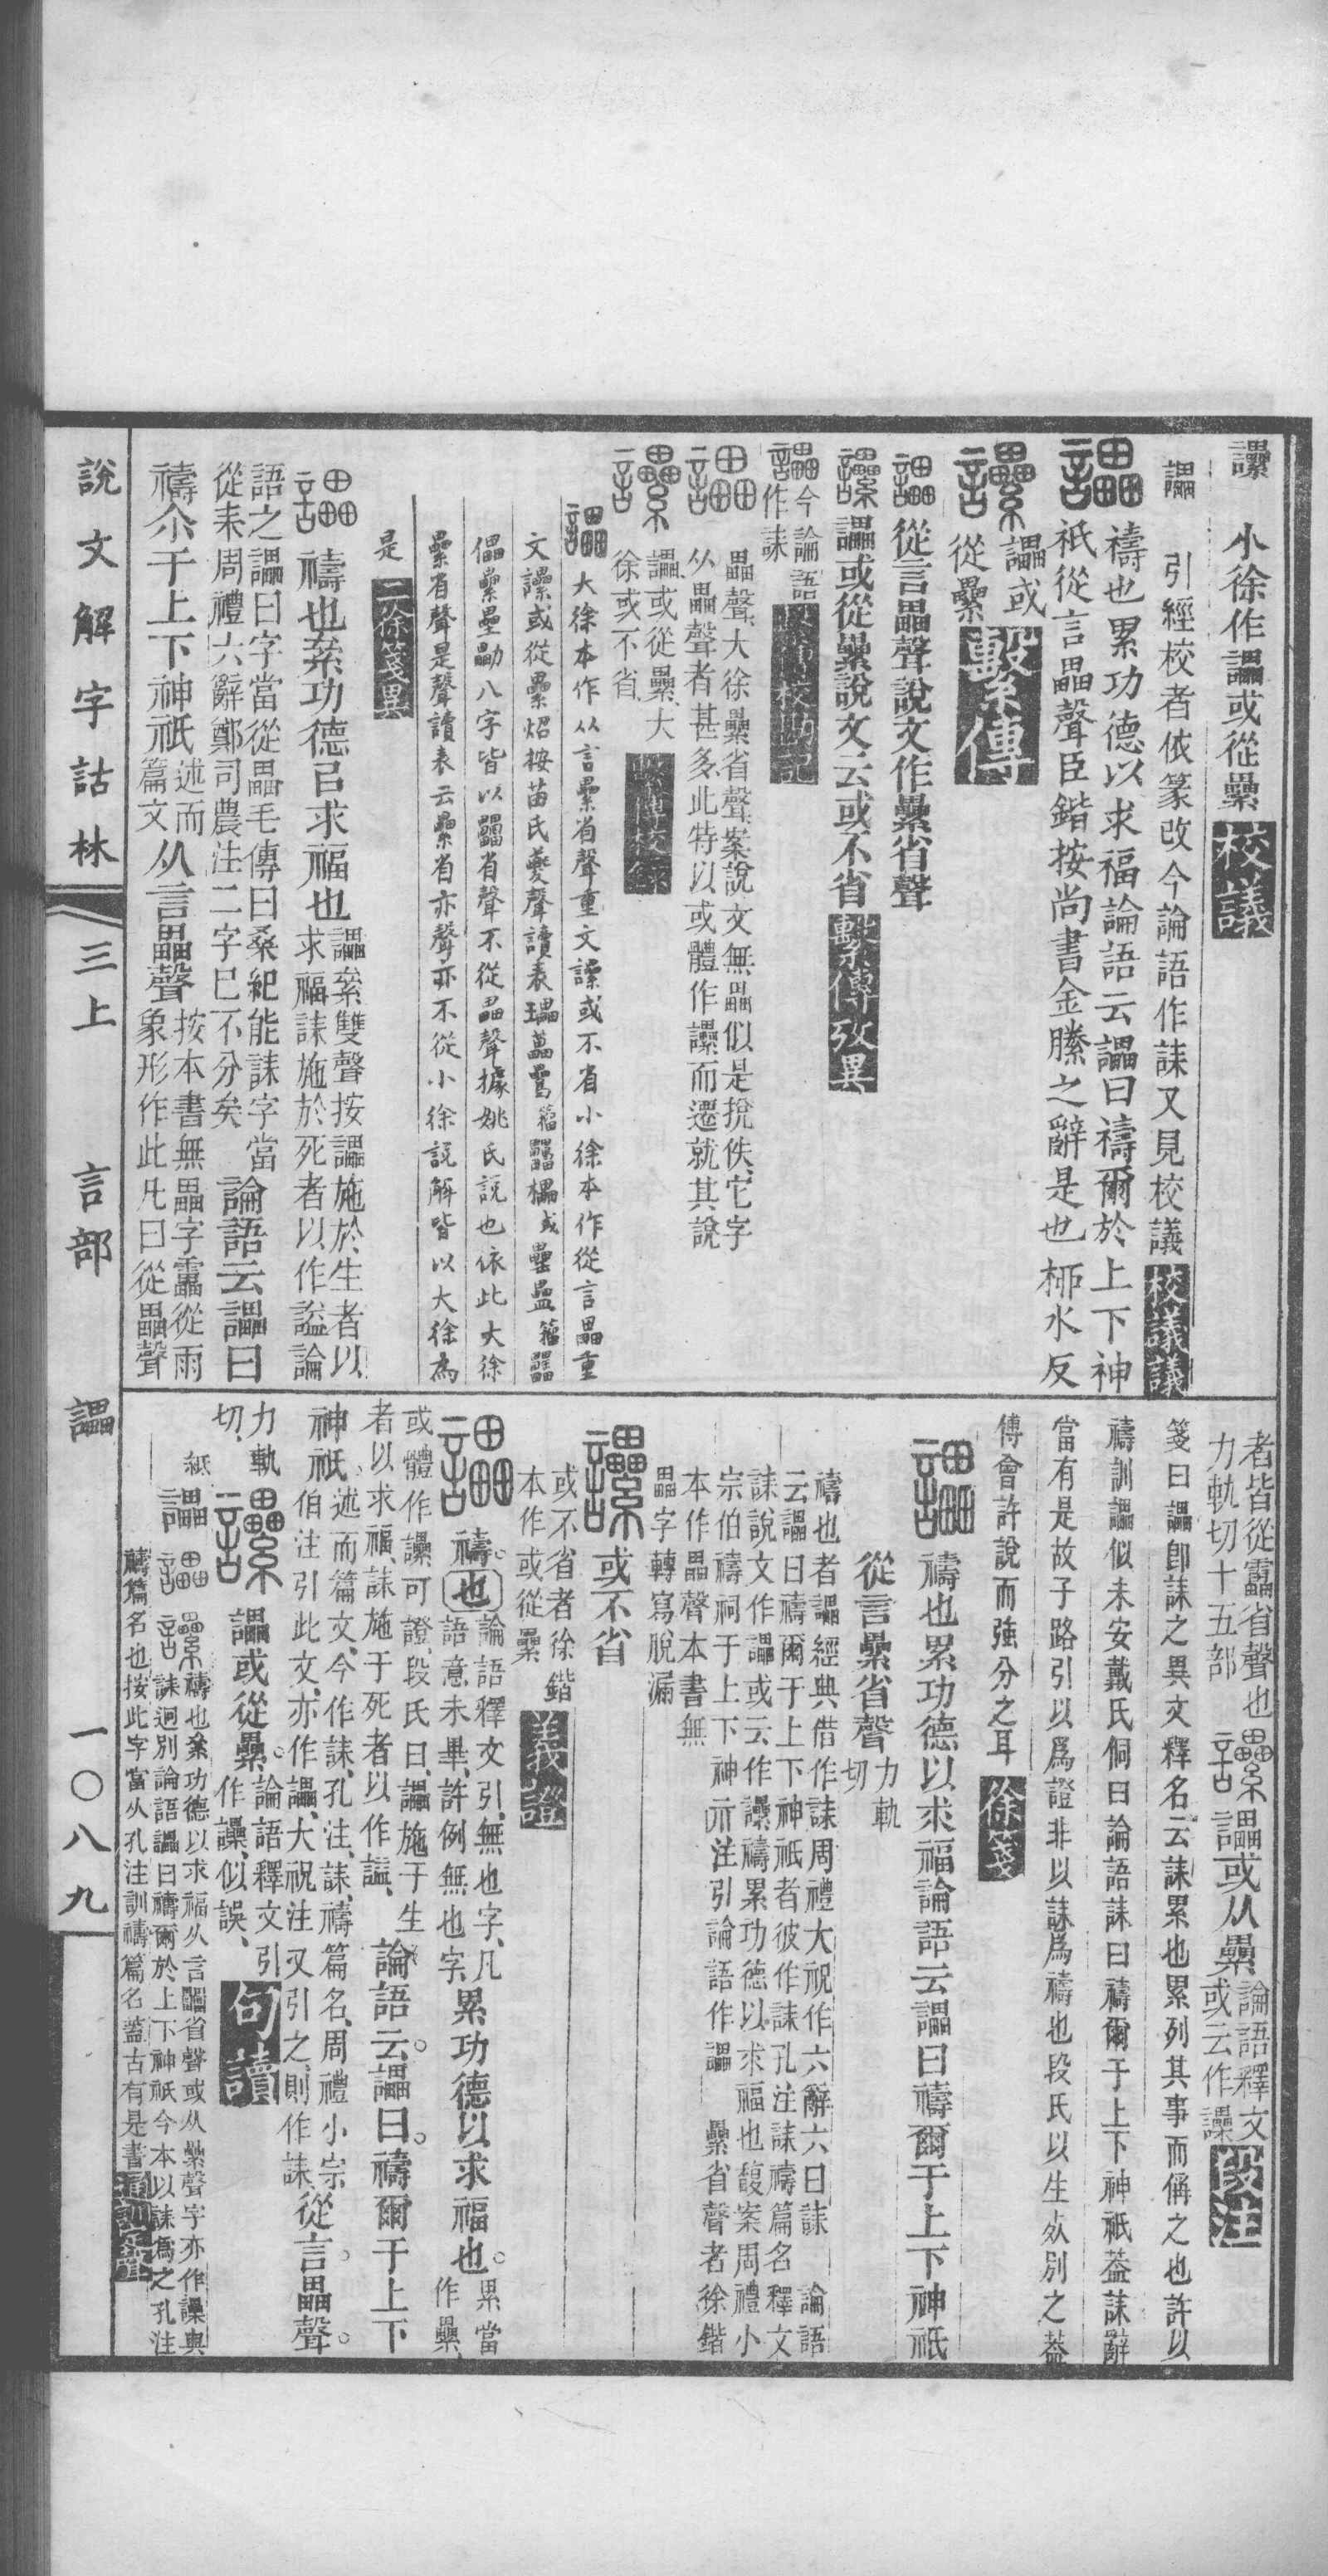 讄　小徐作讄或從纍 校議
讄　引經校者依篆改今論語作誄又見校議 校議議
讄　禱也累功德以求福論語云讄曰禱爾於上下神
祇從言畾聲臣鍇按尚書金縢之辭是也柳水反
讄或
從纍 繫傳
從言畾聲說文作纍省聲
讄或從纍說文云或不省 繫傳攷異
今論語
作誄 繫傳校勘記
畾聲大徐纍省聲案說文無畾似是挩佚它字
从畾聲者甚多此特以或體作讄而遷就其說
讄或從纍大
徐或不省 繫傳校錄
讄 大徐本作从言纍省聲重文讄或不省小徐本作從言畾重
文讄或從纍炤按苗氏夔聲讀表
省聲不從畾聲據姚氏說也依此大徐
纍省聲是聲讀表云纍省亦聲亦不從小徐說解皆以大徐為
是 二徐箋異
禱也絫功德㠯求福也
讄絫雙聲按讄施於生者以
求福誄施於死者以作謚論
語之讄曰字當從畾毛傳曰桑紀能誄字當
從耒周禮六辭鄭司農注二字已不分矣
論語云讄曰
禱尒于上下神祇
述而
篇文
从言畾聲
按本書無畾字靁從雨
象形作此凡曰從畾聲
者皆從靁省聲也
力軌切十五部
讄或从纍
論語釋文
或云作讄 段注
箋曰讄卽誄之異文釋名云誄累也累列其事而稱之也許以
禱訓讄似未安戴氏侗曰論語誄曰禱爾于上下神祇葢誄辭
當有是故子路引以爲證非以誄爲禱也段氏以生死別之葢
傅會許說而強分之耳 徐箋
禱也累功德以求福論語云讄曰禱爾于上下神祇
從言纍省聲
力軌
切
禱也者讄經典借作誄周禮大祝作六辭六曰誄　論語
云讄曰禱爾于上下神祇者彼作誄孔注誄禱篇名釋文
誄說文作讄或云作讄禱累功德以求福也馥案周禮小
宗伯禱祠于上下神示注引論語作讄　纍省聲者徐鍇
本作畾聲本書無
畾字轉寫脫漏
或不省
或不省者徐鍇
本作或從纍 義證
禱也
論語釋文引無也字凡
語意未畢許例無也字
累功德以求福也
累當
作纍
或體作讄可證段氏曰讄施于生
者以求福誄施于死者以作謚
論語云讄曰禱爾于上下
神祇
述而篇文今作誄孔注誄禱篇名周禮小宗
伯注引此文亦作讄大祝注又引之則作誄
從言畾聲
力軌
切
讄或從纍
論語釋文引
作讄似誤 句讀
讄 禱也絫功德以求福从言畾省聲或从纍聲字亦作讄與
誄迥別論語讄曰禱爾於上下神祇今本以誄爲之孔注
禱篇名也按此字當从孔注訓禱篇名葢古有是書 通訓定聲
說文解字詁林　三上　言部　讄　一〇八九